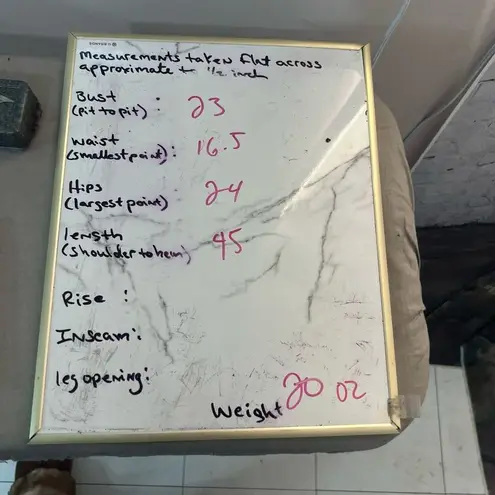 Measurements taken flat across
approximate + 1/2 inch
Bust : 23
(pit to pit)
waist
(smallest point): 16.5
Hips : 24
(largest point)
length
(shoulder to hem) 45
Rise :
Inseam:
leg opening:
Weight 20 oz